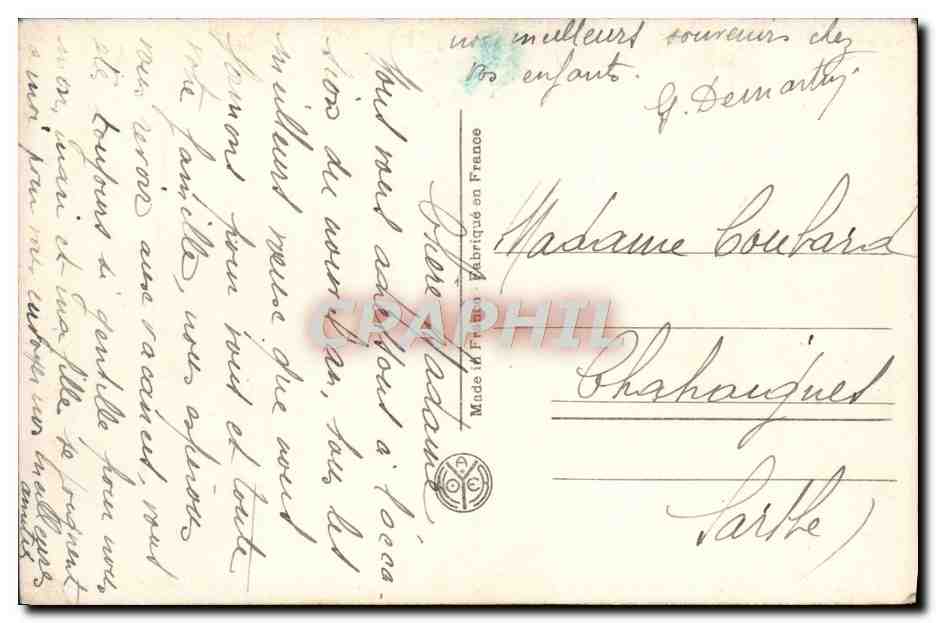 Chère Madame
Nous vous adressons à l'occa-
sion du nouvel an, tous les
meilleurs vœux que nous
formons pour vous et toute
votre famille, nous espérons
vous revoir aux vacances, vous
êtes toujours si gentille pour nous
mon mari et ma fille se joignent
à moi pour vous envoyer nos meilleures
amitiés
nos meilleurs souvenirs chez
vos enfants.
G. Demartig
Made in France - Fabriqué en France
Madame Coubard
Chahaignes
Sarthe
CPAPHIL